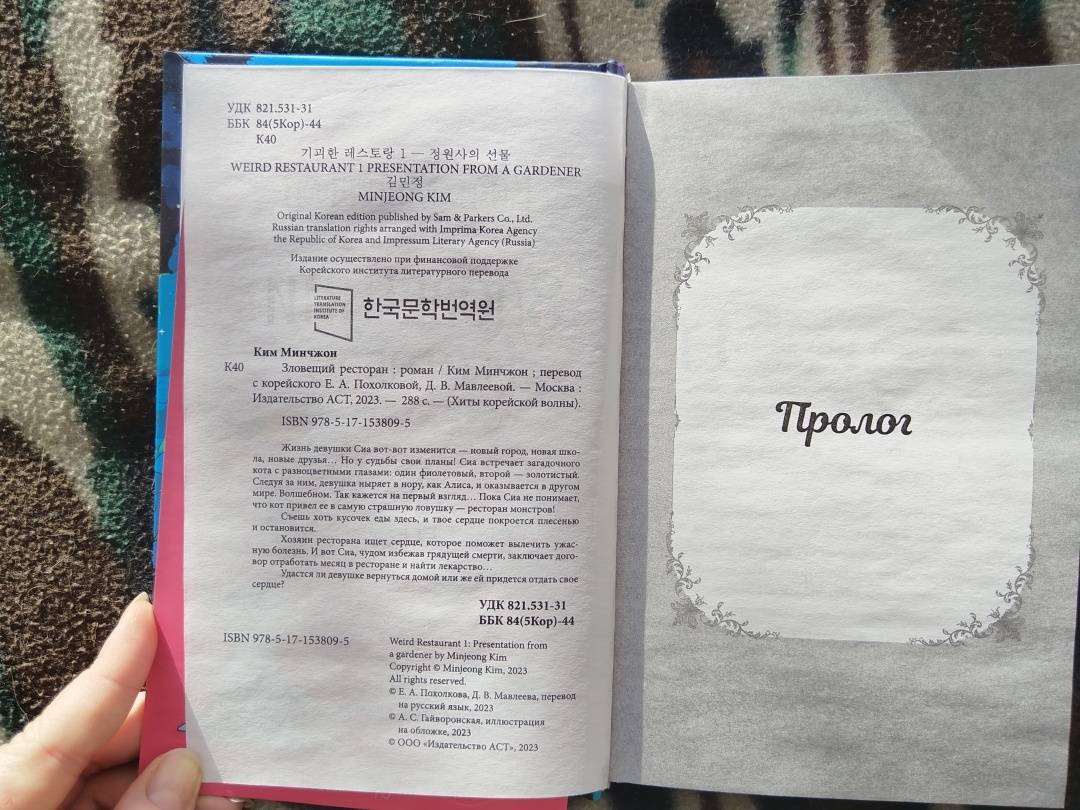 УДК 821.531-31
ББК 84(5Кор)-44
К40
기괴한 레스토랑 1 — 정원사의 선물
WEIRD RESTAURANT 1 PRESENTATION FROM A GARDENER
김민정
MINJEONG KIM
Original Korean edition published by Sam & Parkers Co., Ltd.
Russian translation rights arranged with Imprima Korea Agency
the Republic of Korea and Impressum Literary Agency (Russia)
Издание осуществлено при финансовой поддержке
Корейского института литературного перевода
LITERATURE
TRANSLATION
INSTITUTE OF
KOREA
한국문학번역원
Ким Минчжон
К40 Зловещий ресторан : роман / Ким Минчжон ; перевод
с корейского Е. А. Похолковой, Д. В. Мавлеевой. — Москва :
Издательство АСТ, 2023. — 288 с. — (Хиты корейской волны).
ISBN 978-5-17-153809-5
Жизнь девушки Сиа вот-вот изменится — новый город, новая шко-
ла, новые друзья... Но у судьбы свои планы! Сиа встречает загадочного
кота с разноцветными глазами: один фиолетовый, второй — золотистый.
Следуя за ним, девушка ныряет в нору, как Алиса, и оказывается в другом
мире. Волшебном. Так кажется на первый взгляд... Пока Сиа не понимает,
что кот привел ее в самую страшную ловушку — ресторан монстров!
Съешь хоть кусочек еды здесь, и твое сердце покроется плесенью
и остановится.
Хозяин ресторана ищет сердце, которое поможет вылечить ужас-
ную болезнь. И вот Сиа, чудом избежав грядущей смерти, заключает дого-
вор отработать месяц в ресторане и найти лекарство...
Удастся ли девушке вернуться домой или же ей придется отдать свое
сердце?
УДК 821.531-31
ББК 84(5Кор)-44
ISBN 978-5-17-153809-5
Weird Restaurant 1: Presentation from
a gardener by Minjeong Kim
Copyright © Minjeong Kim, 2023
All rights reserved.
© Е. А. Похолкова, Д. В. Мавлеева, перевод
на русский язык, 2023
© А. С. Гайворонская, иллюстрация
на обложке, 2023
© ООО «Издательство АСТ», 2023
Пролог